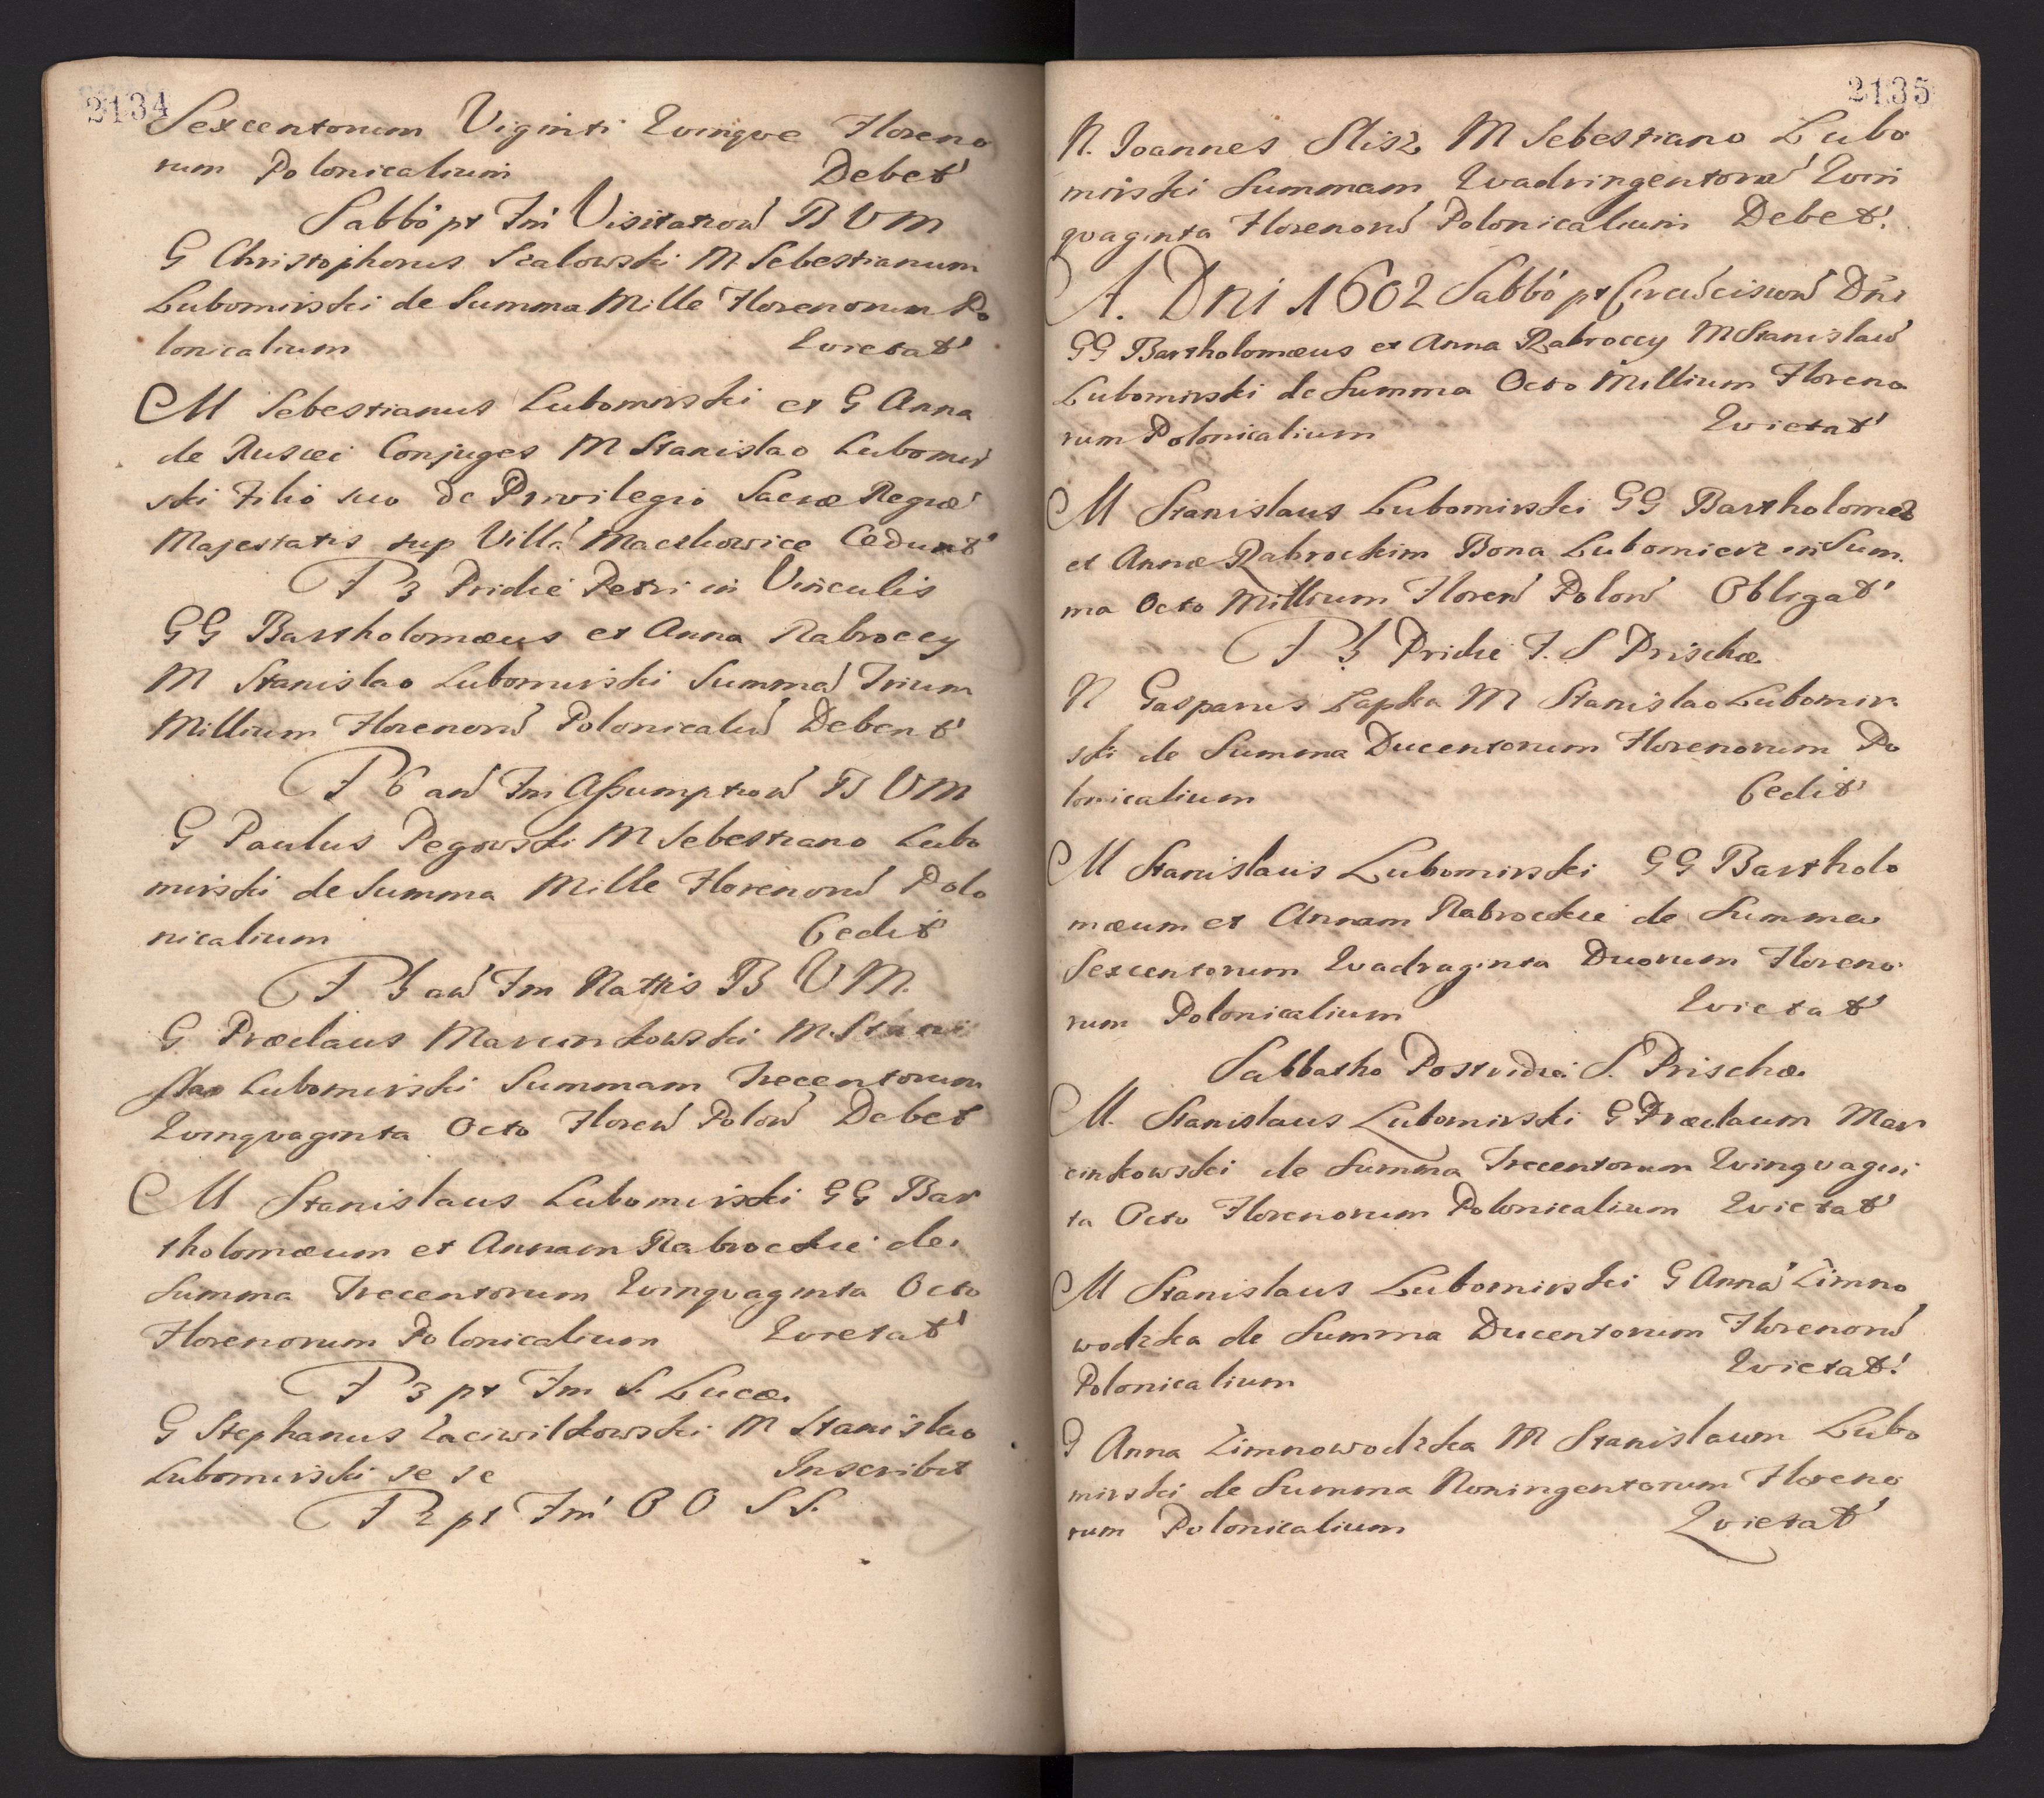 2134
Sexcentorum Viginti Qvinqve Floreno
rum Polonicalium Debet
Sabbo pt Fm Visitation B V M
G Christophorus Scalowski M Sebestianum
Lubomirski de Summa Mille Florenorum Po
lonicalium Qvietat
M Sebestianus Lubomirski et G Anna
de Ruscei Conjuges M Stanislao Lubomir
ski Filio suo de Privilegio Sacræ Regiæ
Majestatis sup Villa Mackowice Cedunt
F 3 Pridie Petri in Vinculis
GG Bartholomæus et Anna Rabroccy
M Stanislao Lubomirski Summa Trium
Millium Florenorũ Polonicaliũ Debent
F 6 an Fm Assumption B V M
G Paulus Pegowski M Sebestiano Lubo
mirski de Summa Mille Florenorũ Polo
nicalium Cedit
F 3 an Fm Nattis B V M.
G Præclaus Marcinkowski M. Stani
slao Lubomirski Summam Trecentorum
Qvinqvaginta Octo Floren Polon Debet
M Stanislaus Lubomirski GG Bar
tholomæum et Annam Rabrockie de
Summa Trecentorum Qvinqvaginta Octo
Florenorum Polonicalium Qvietat
F 3 pt Fm S. Lucæ
G Stephanus Zacwilkowski M Stanislao
Lubomirski se se Inscribit
F 2 pt Fm O O S S.
2135
N. Joannes Slisz M Sebestiano Lubo
mirski Summam Qvadringentorũ Qvin
qvaginta Florenorũ Polonicalium Debet.
A. Dni 1602 Sabbo pt Circũcision Dni
GG Bartholomæus et Anna Rabroccy M Stanislaũ
Lubomirski de Summa Octo Millium Floreno
rum Polonicalium Qvietat
M Stanislaus Lubomirski GG Bartholomeo
et Annæ Rabrockim Bona Lubomierz in Sum
ma Octo Millium Floren Polon Obligat
F 3 Pridie F. S Prischæ
N Gasparus Łapka M Stanislao Lubomir
ski de Summa Ducentorum Florenorum Po
lonicalium Cedit
M Stanislaus Lubomirski GG Bartholo
mæum et Annam Rabrockie de Summa
Sexcentorum Qvadraginta Duorum Floreno
rum Polonicalium Qvietat
Sabbatho Postridie S. Prischæ
M. Stanislaus Lubomirski G Præclaum Mar
cinkowski de Summa Trecentorum Qvinqvagin
ta Octo Florenorum Polonicalium Qvietat
M Stanislaus Lubomirski G Annã Zimno
wodzka de Summa Ducentorum Florenorũ
Polonicalium Qvietat.
G Anna Zimnowodzka M Stanislaum Lubo
mirski de Summa Noningentorum Floreno
rum Polonicalium Qvietat